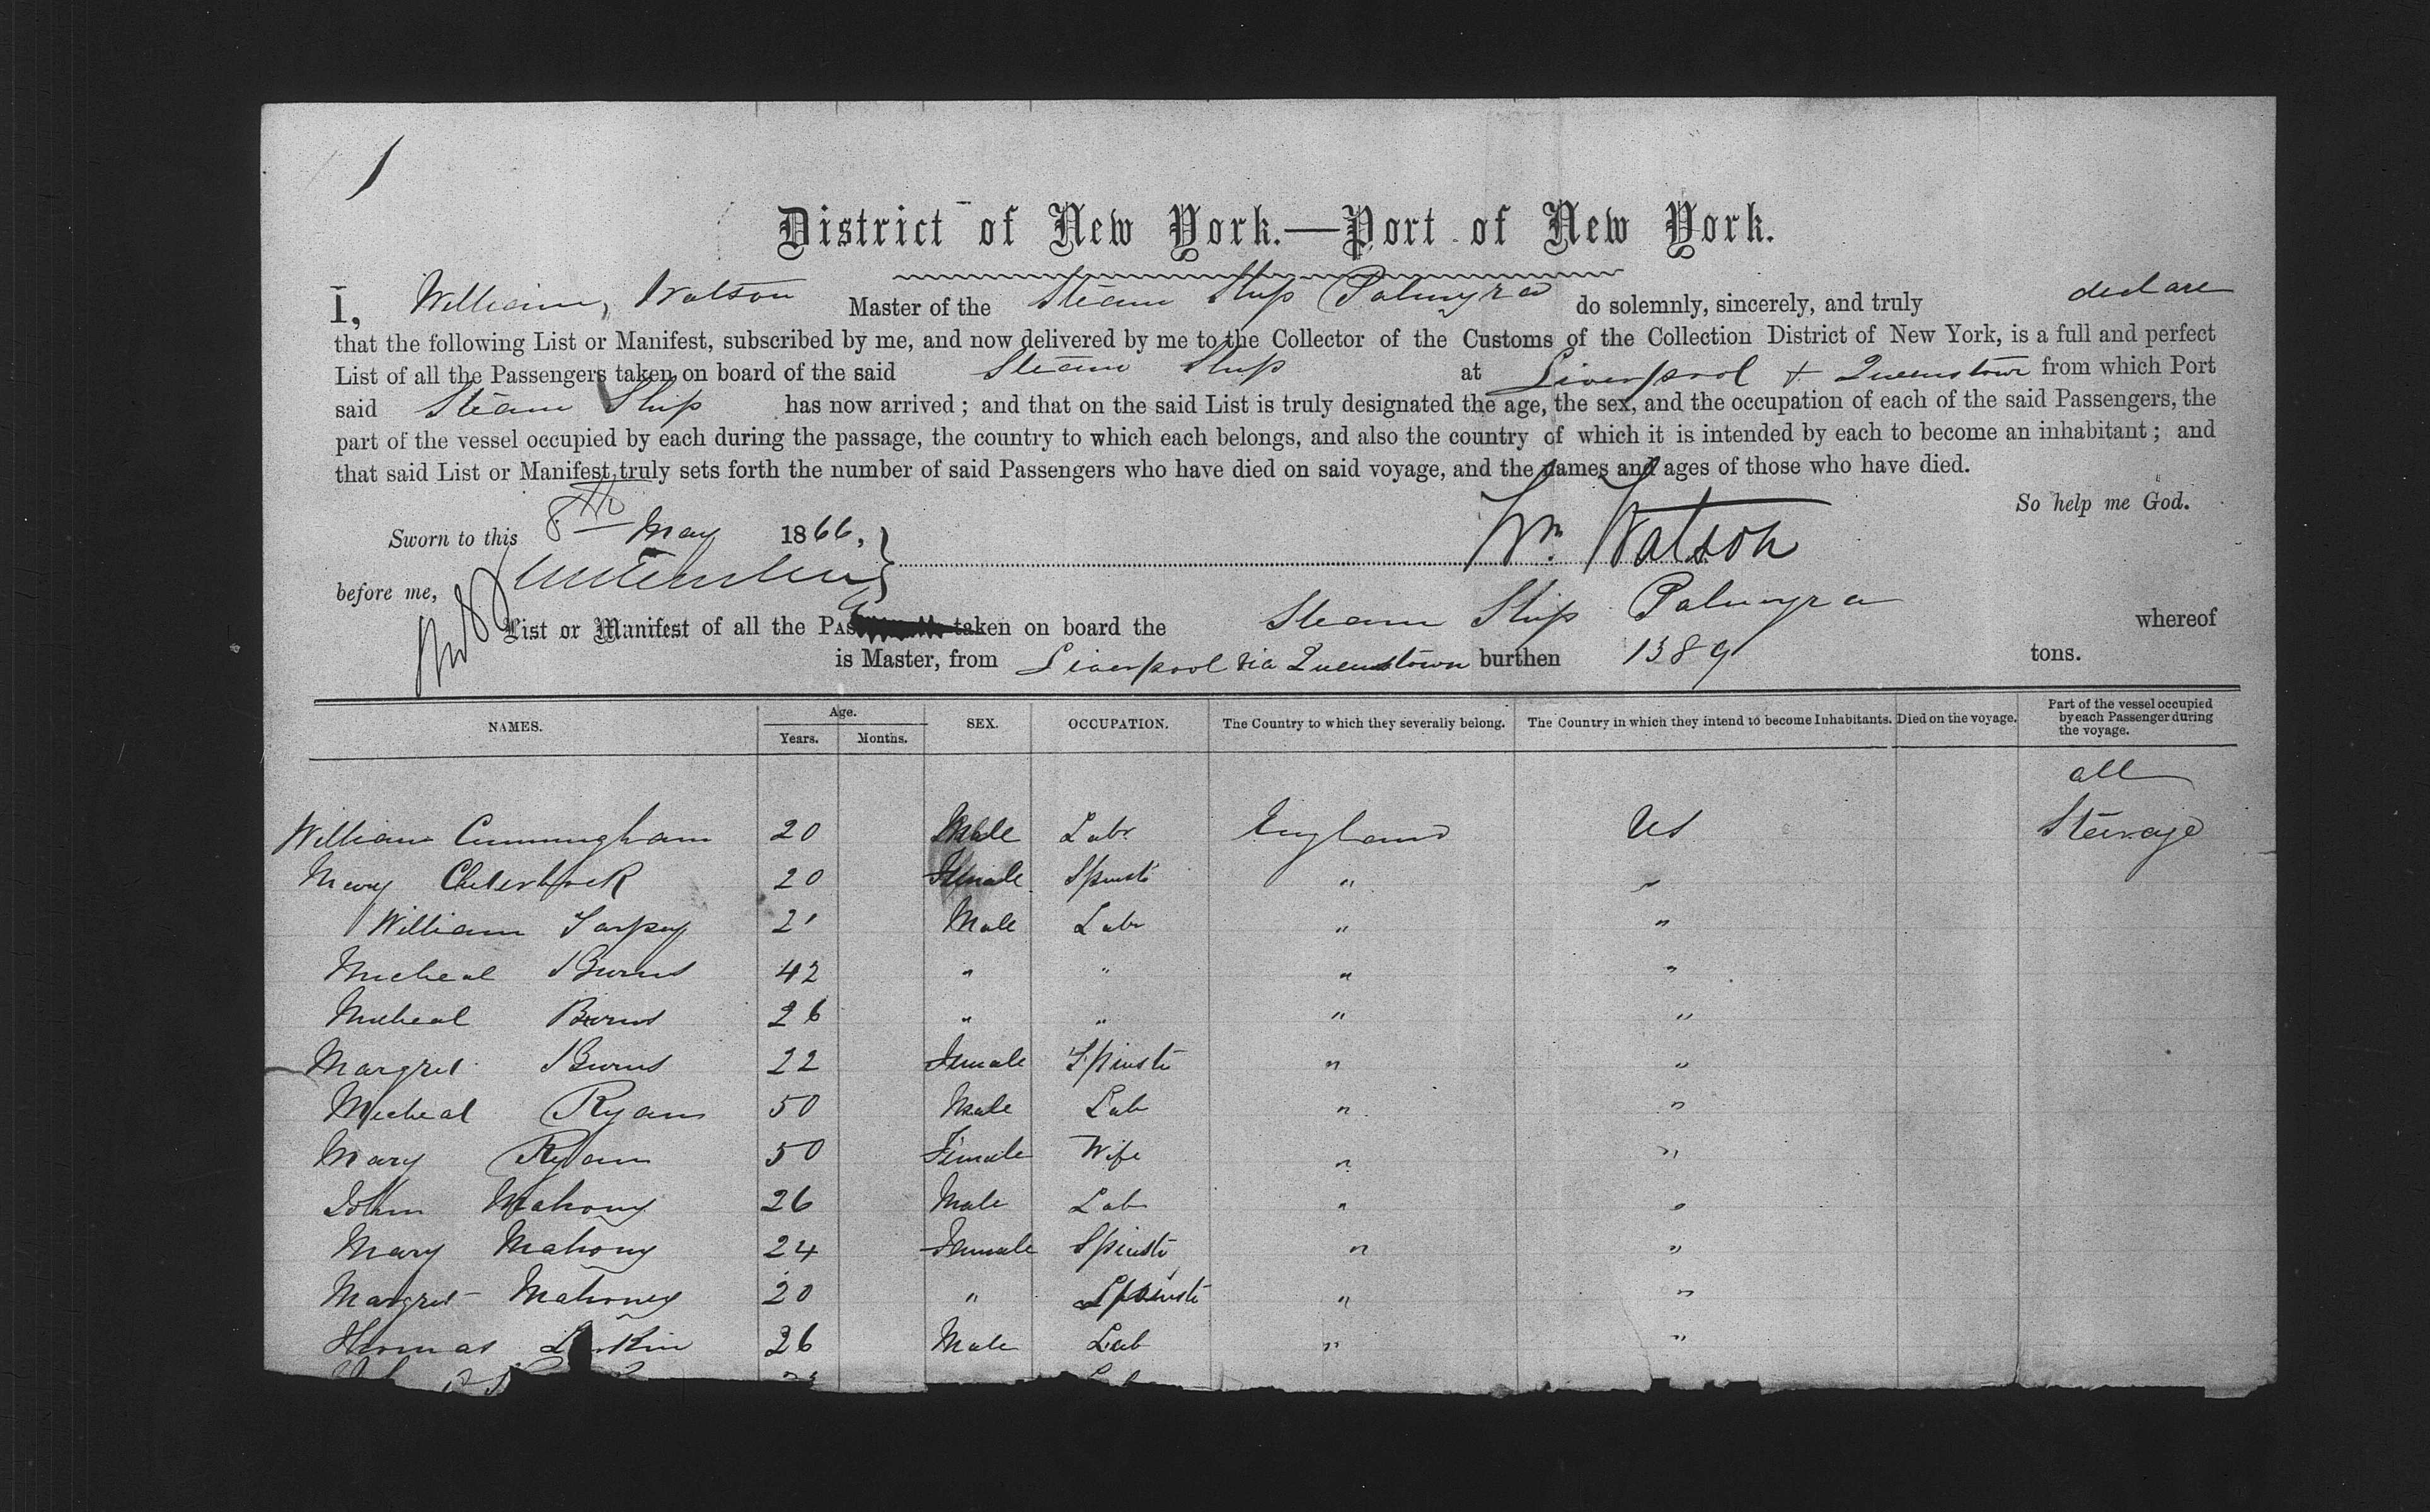 1
District of New York.—Port of New York.
I, William Watson Master of the Steam Ship Palmyra do solemnly, sincerely, and truly declare
that the following List or Manifest, subscribed by me, and now delivered by me to the Collector of the Customs of the Collection District of New York, is a full and perfect
List of all the Passengers taken on board of the said Steam Ship at Liverpool & Queenstown from which Port
said Steam Ship has now arrived; and that on the said List is truly designated the age, the sex, and the occupation of each of the said Passengers, the
part of the vessel occupied by each during the passage, the country to which each belongs, and also the country of which it is intended by each to become an inhabitant; and
that said List or Manifest truly sets forth the number of said Passengers who have died on said voyage, and the names and ages of those who have died.
So help me God.
Sworn to this 8th May 1866, Wm. Watson
before me,
List or Manifest of all the taken on board the Steam Ship Palmyra whereof
is Master, from Liverpool via Queenstown burthen 1389 tons.
NAMES. Age. Years. Months. SEX. OCCUPATION. The Country to which they severally belong. The Country in which they intend to become Inhabitants. Died on the voyage. Part of the vessel occupied by each Passenger during the voyage.
all
William Cunningham 20 Male Labr England US Steerage
Mary 20 Female Spinstr " "
William Tarpey 21 Male Labr " "
Micheal Burns 42 " " " "
Micheal Burns 26 " " " "
Margret Burns 22 Female Spinstr " "
Micheal Ryan 50 Male Lab " "
Mary Ryan 50 Female Wife " "
John Mahony 26 Male Lab " "
Mary Mahony 24 Female Spinstr " "
Margret Mahoney 20 " Spinstr " "
Thomas Larkin 26 Male Lab " "